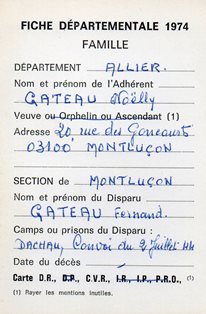 FICHE DÉPARTEMENTALE 1974
FAMILLE
DÉPARTEMENT ALLIER.
Nom et prénom de l'Adhérent
GATEAU Nelly
Veuve ou Orphelin ou Ascendant (1)
Adresse 20 rue des Goncourt
03100 MONTLUÇON
SECTION de MONTLUÇON
Nom et prénom du Disparu
GATEAU Fernand.
Camps ou prisons du Disparu :
DACHAU, Convoi du 2 Juillet 44
Date du décès
Carte D.R., D.P., C.V.R., I.R., I.P., P.R.O., (1)
(1) Rayer les mentions inutiles.